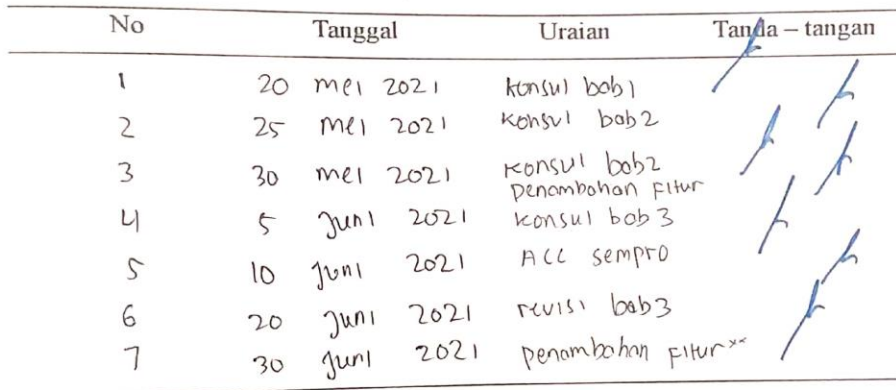 No Tanggal Uraian Tanda – tangan
1 20 mei 2021 konsul bab 1
2 25 mei 2021 konsul bab 2
3 30 mei 2021 konsul bab 2
Penambahan Fitur
4 5 Juni 2021 konsul bab 3
5 10 Juni 2021 ACC sempro
6 20 Juni 2021 revisi bab 3
7 30 Juni 2021 Penambahan Fitur**